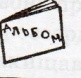 АЛЬБОМ